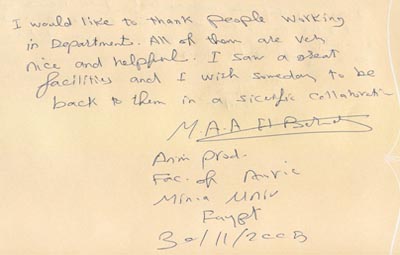 I would like to thank people working
in Departments. All of them are very
nice and helpful. I saw a great
facilities and I wish someday to be
back to them in a sicetific collaboration
M.A.A El
Anim prod.
Fac. of Agric
Minia Univ
Egypt
30/11/2005